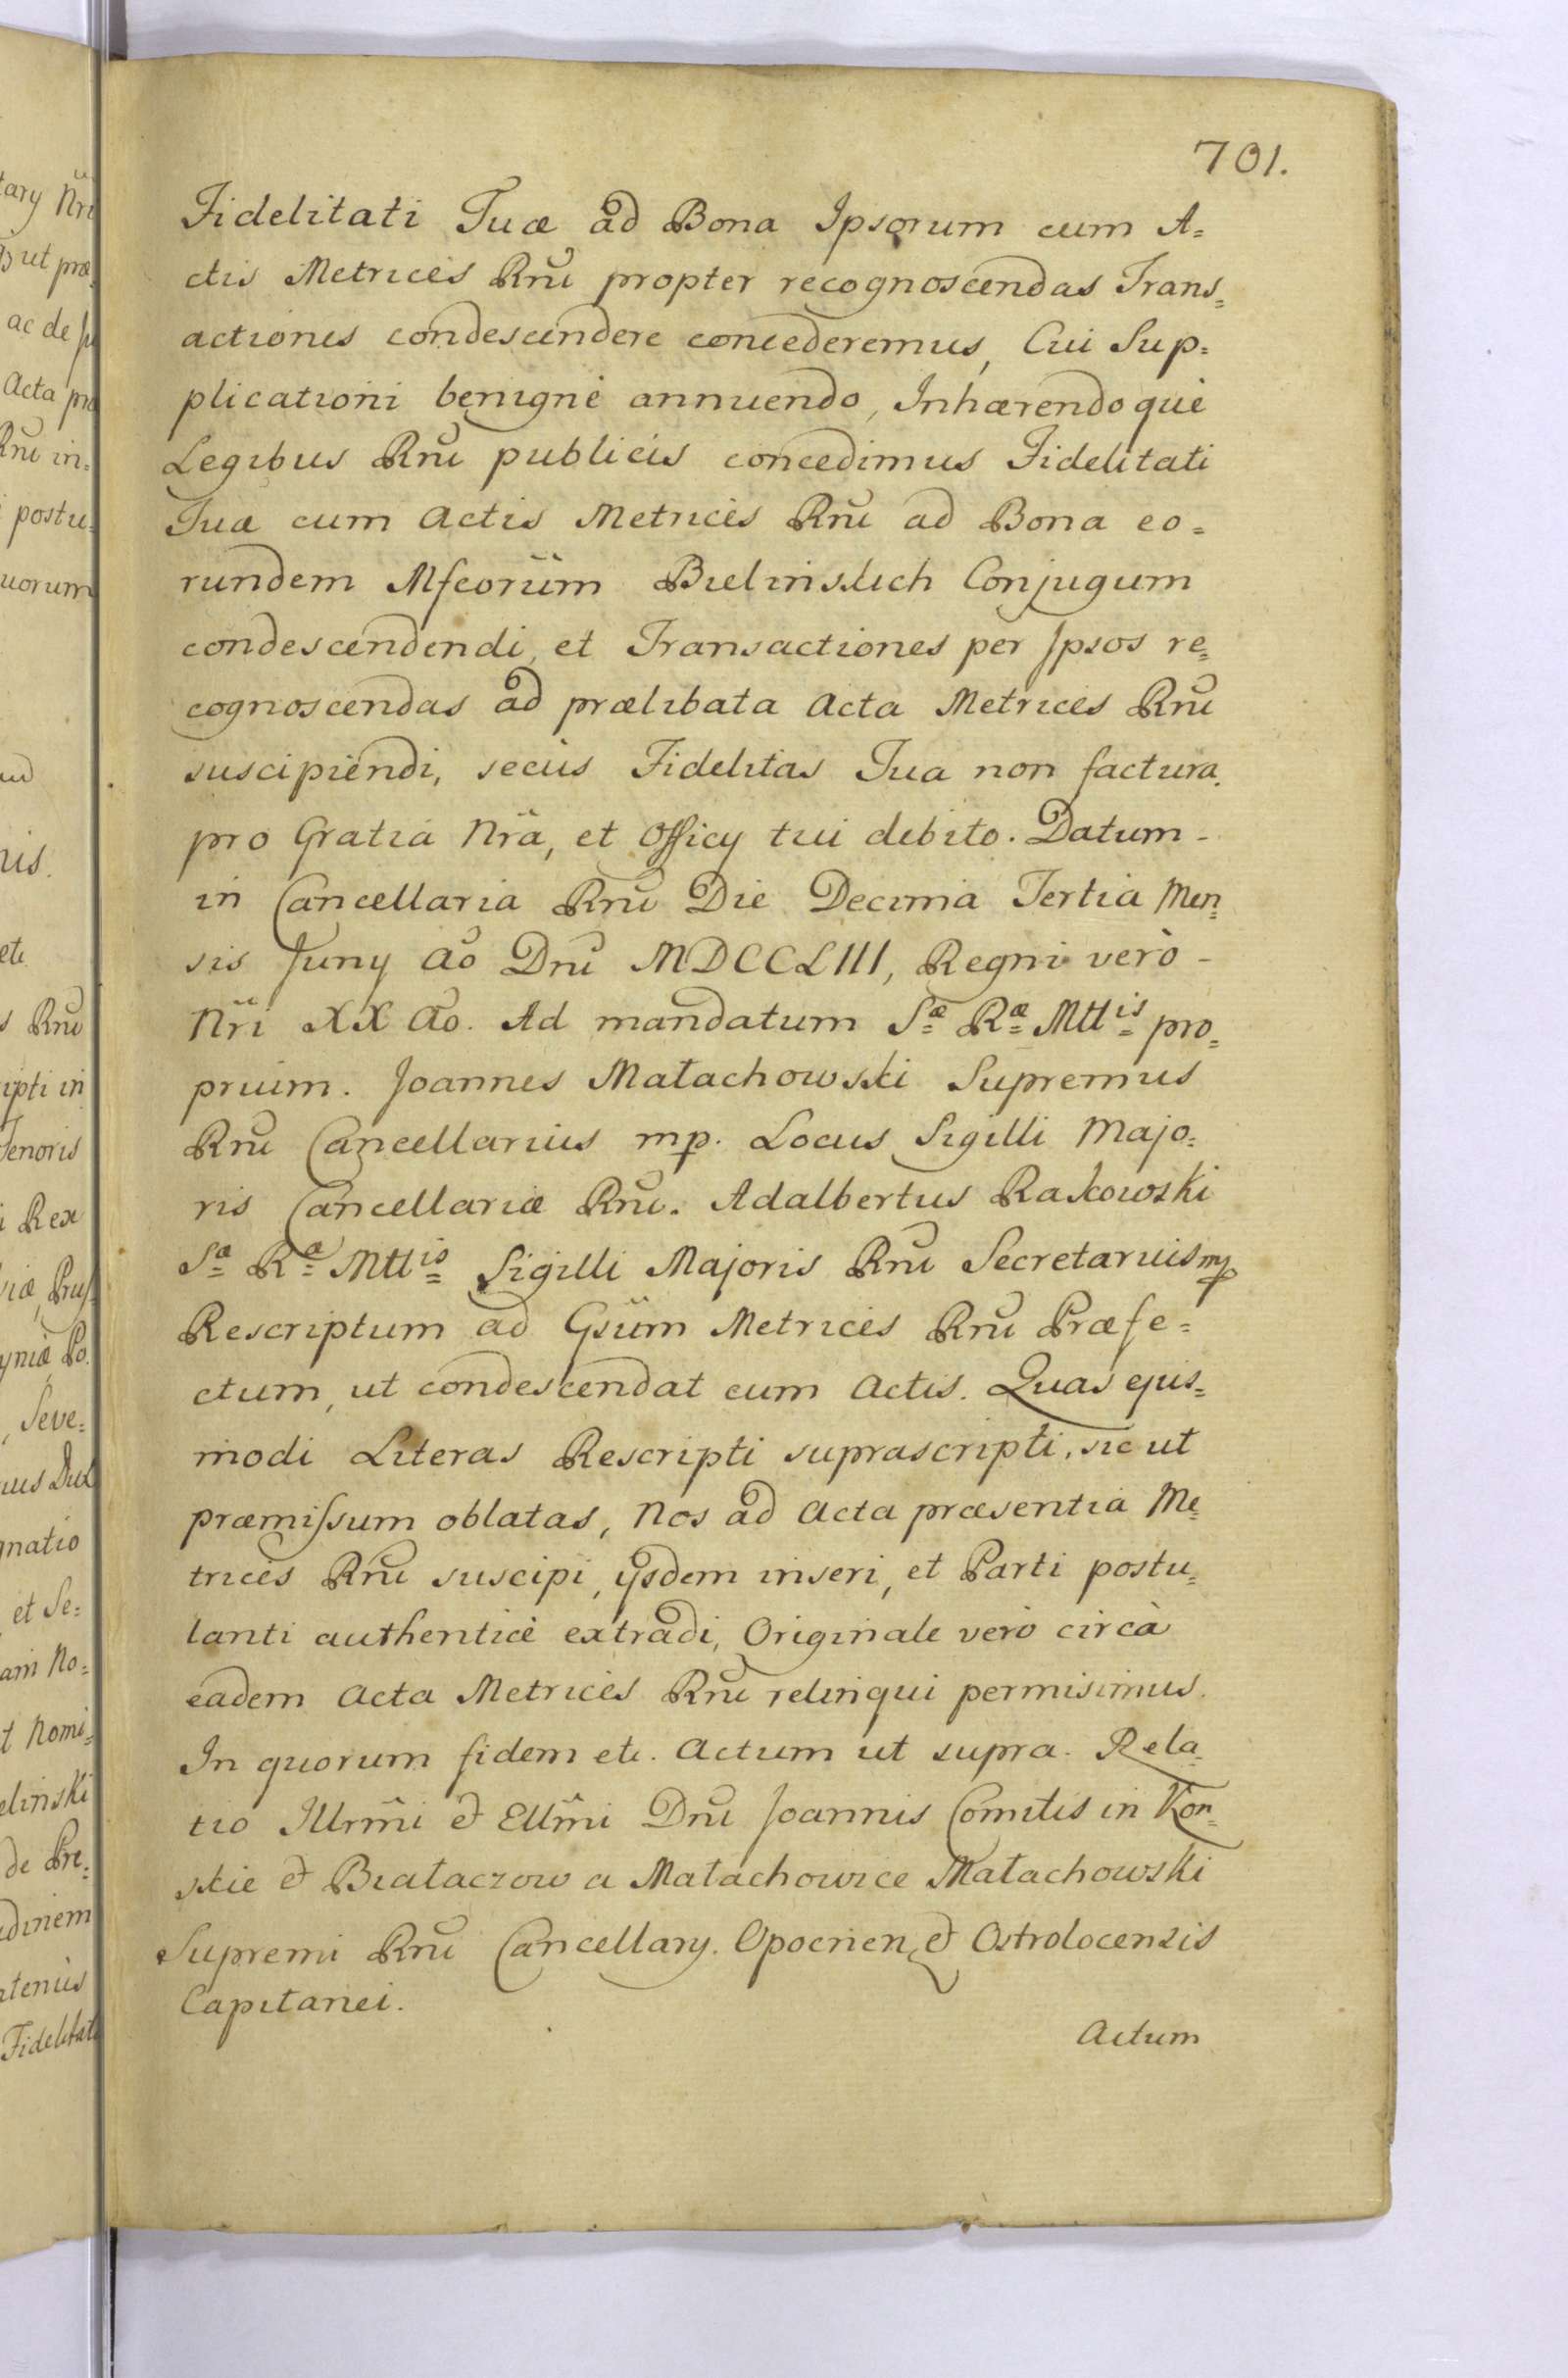 701.
Fidelitati Tuæ ad Bona Ipsorum cum A=
ctis Metrices Rnu propter recognoscendas Trans=
actiones condescendere concederemus, Cui Sup=
plicationi benignè annuendo, Inhærendo què
Legibus Rnu publicis concedimus Fidelitati
Tuæ cum Actis Metrices Rnu ad Bona eo=
rundem Mfcorum Bielinskich Conjugum
condescendendi, et Transactiones per Ipsos re=
cognoscendas ad prælibata Acta Metrices Rnu
suscipiendi, secus Fidelitas Tua non factura.
pro Gratia Nra, et Officy tui debito. Datum -
in Cancellaria Rnu Die Decima Tertia Men=
sis Juny Ao Dnu MDCCLIII, Regni verò -
Nri XX Ao. Ad mandatum Sæ Ræ Mttis pro=
prium. Joannes Małachowski Supremus
Rnu Cancellarius mp. Locus Sigilli Majo=
ris Cancellariæ Rnu. Adalbertus Rakowski
Sæ Ræ Mttis Sigilli Majoris Rnu Secretarius mp
Rescriptum ad Gsum Metrices Rnu Præfe=
ctum, ut condescendat cum Actis. Quas ejus=
modi Literas Rescripti suprascripti, sic ut
præmissum oblatas, Nos ad Acta præsentia Me=
trices Rnu suscipi, ijsdem inseri, et Parti postu=
lanti authenticè extradi, Originale verò circà
eadem Acta Metrices Rnu relinqui permisimus.
In quorum fidem etc. Actum ut supra. Rela=
tio Illrmi et Ellmi Dnu Joannis Comitis in Kon=
skie et Białaczow a Małachowice Małachowski
Supremi Rnu Cancellary. Opocnen et Ostrolocensis
Capitanei.
Actum